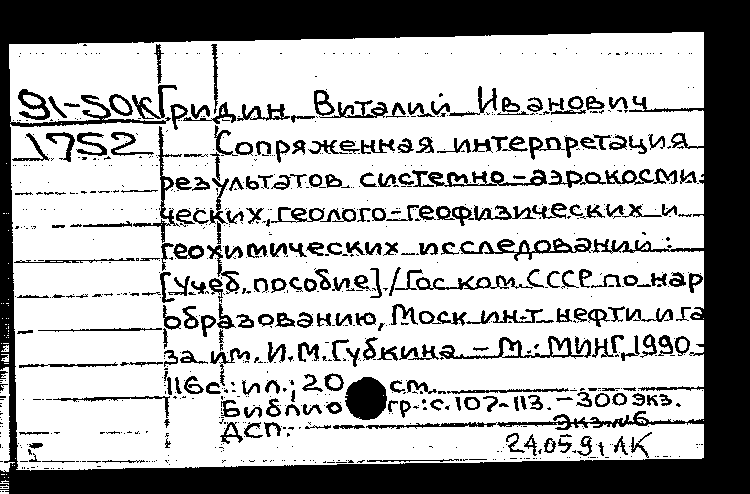 91-50К Гридин, Виталий Иванович
1752 Сопряженная интерпретация
результатов системно-аэрокосми-
ческих, геолого-геофизических и
геохимических исследований :
[Учеб. пособие] / Гос ком. СССР по нар
образованию, Моск ин-т нефти и га
за им. И.М. Губкина. - М.: МИНГ, 1990-
116с.: ил.; 20 см.
Библиогр.: с. 107-113. - 300 экз.
ДСП. Экз. № 6
5 24.05.91 ЛК